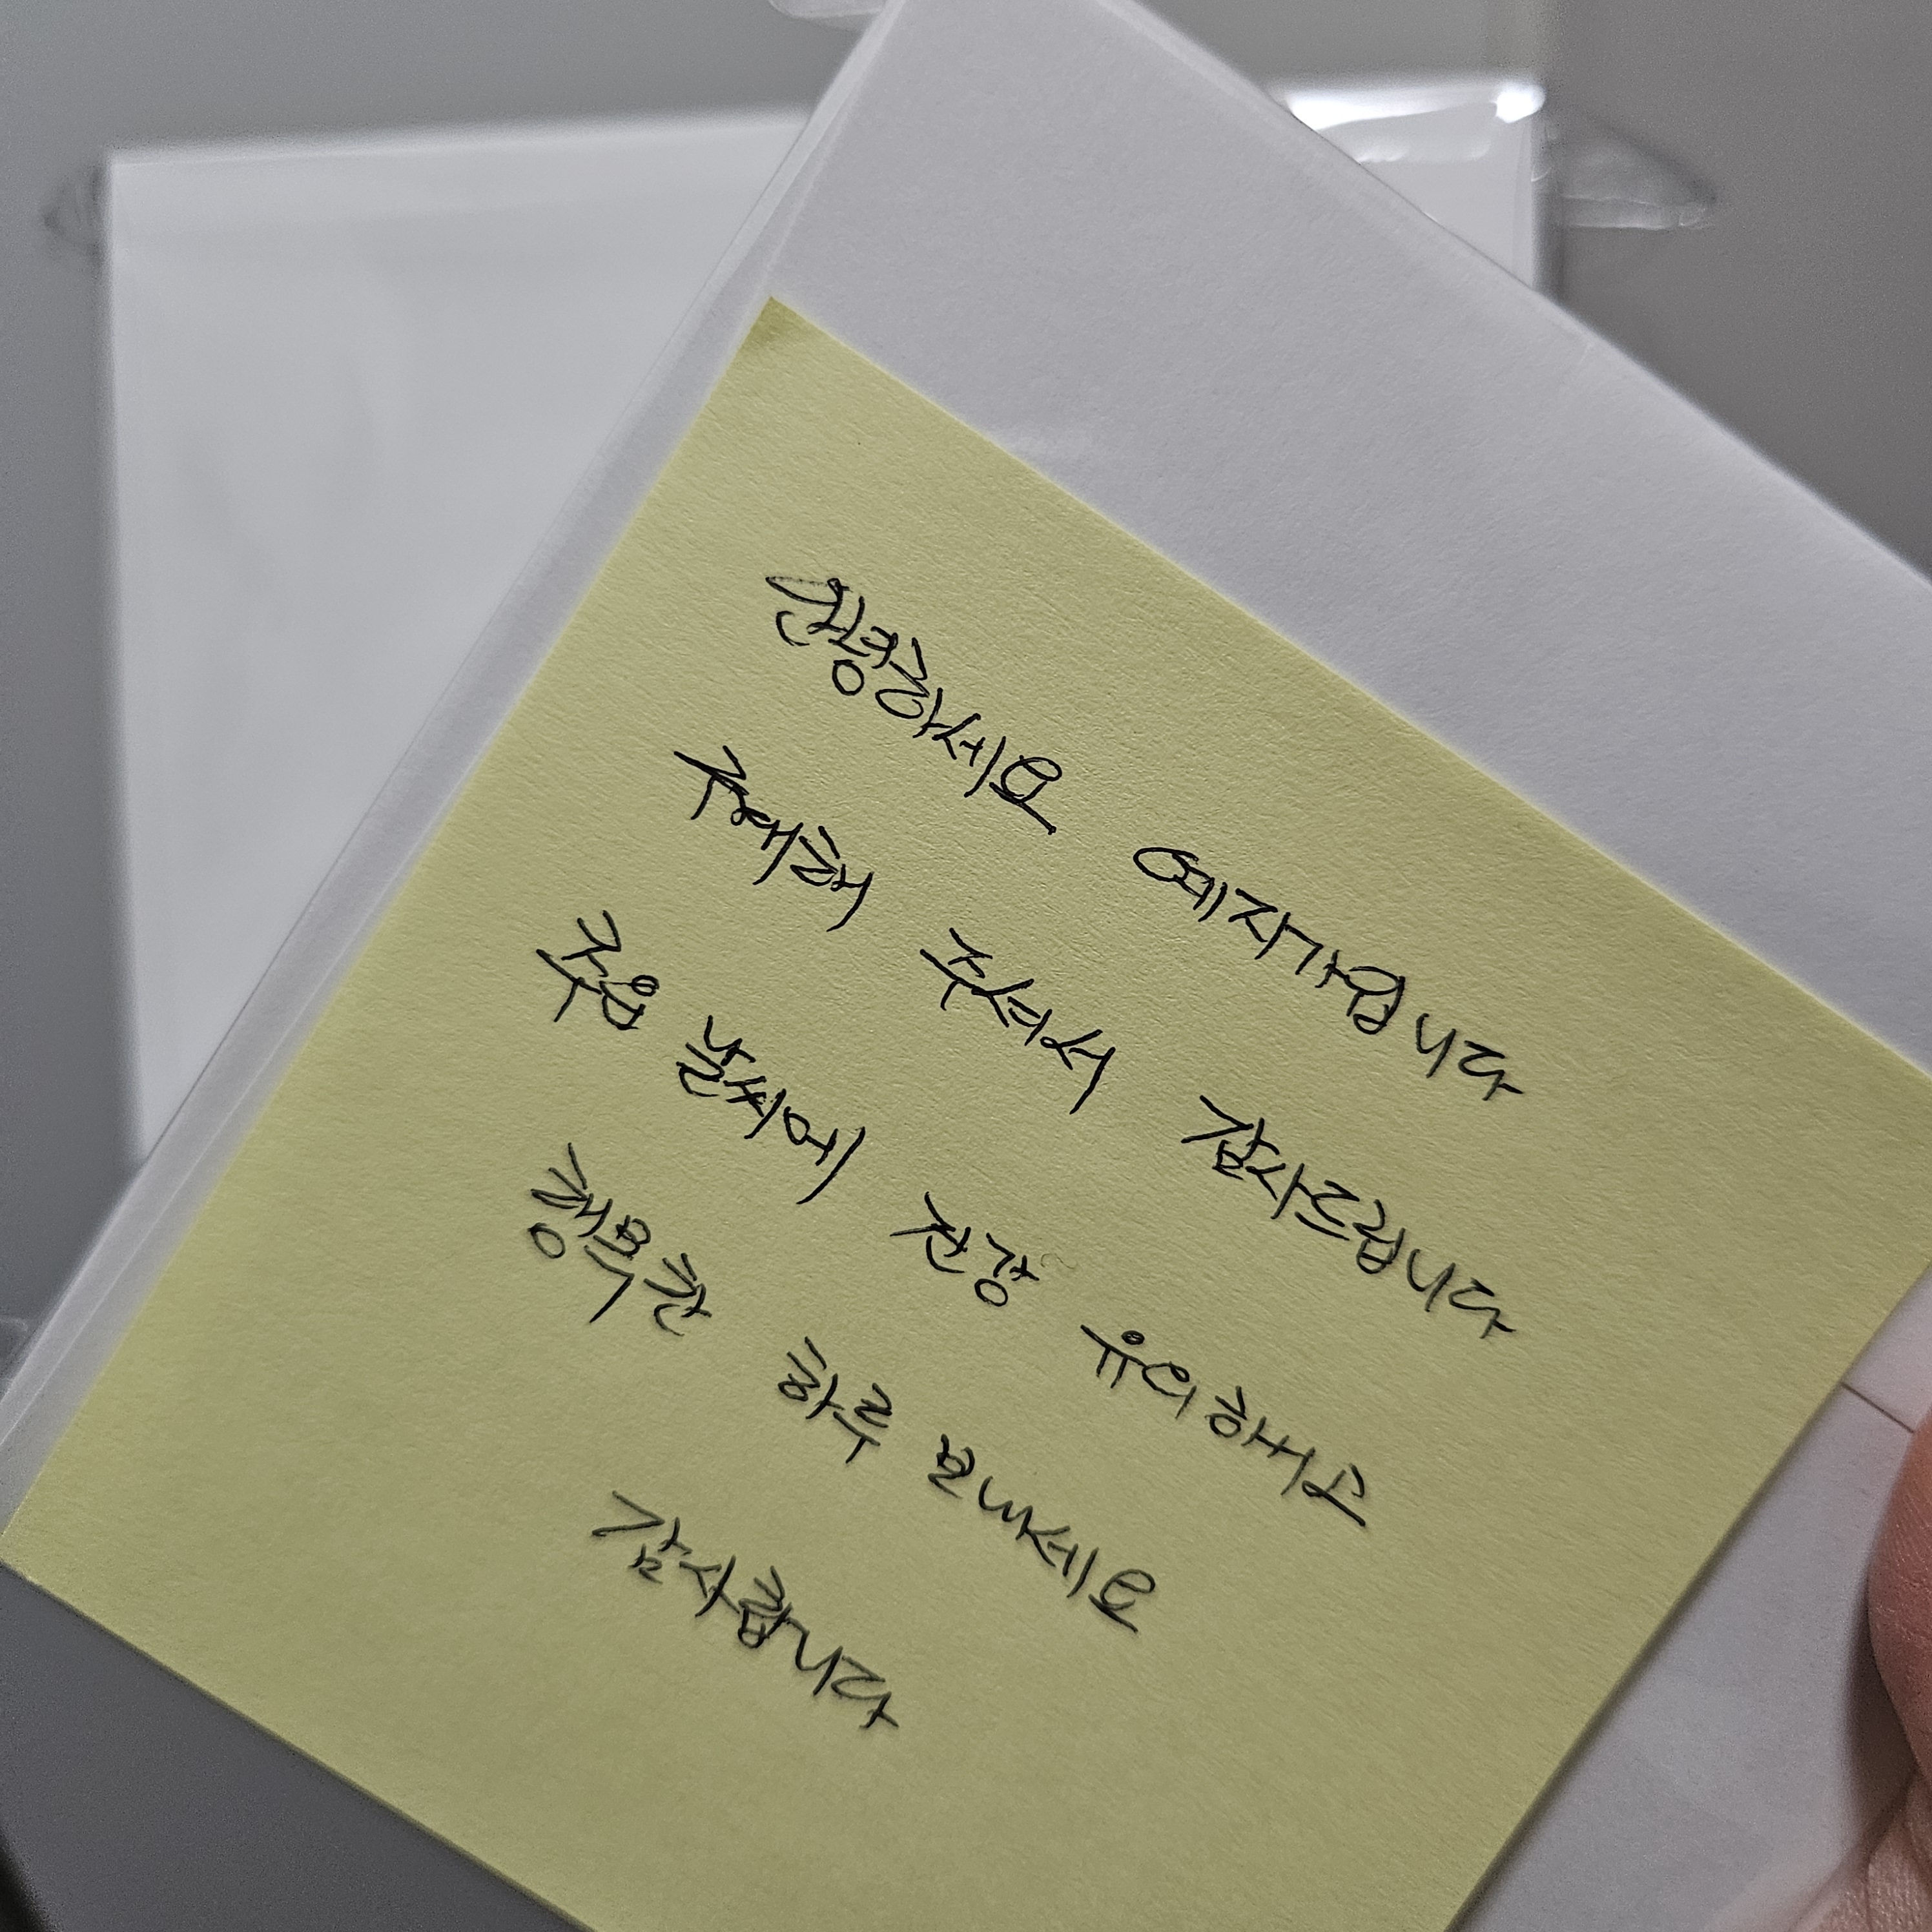 안녕하세요 예자가입니다
구매해 주셔서 감사드립니다
추운 날씨에 건강 유의하쎄요
행복한 하루 보내세요
감사합니다